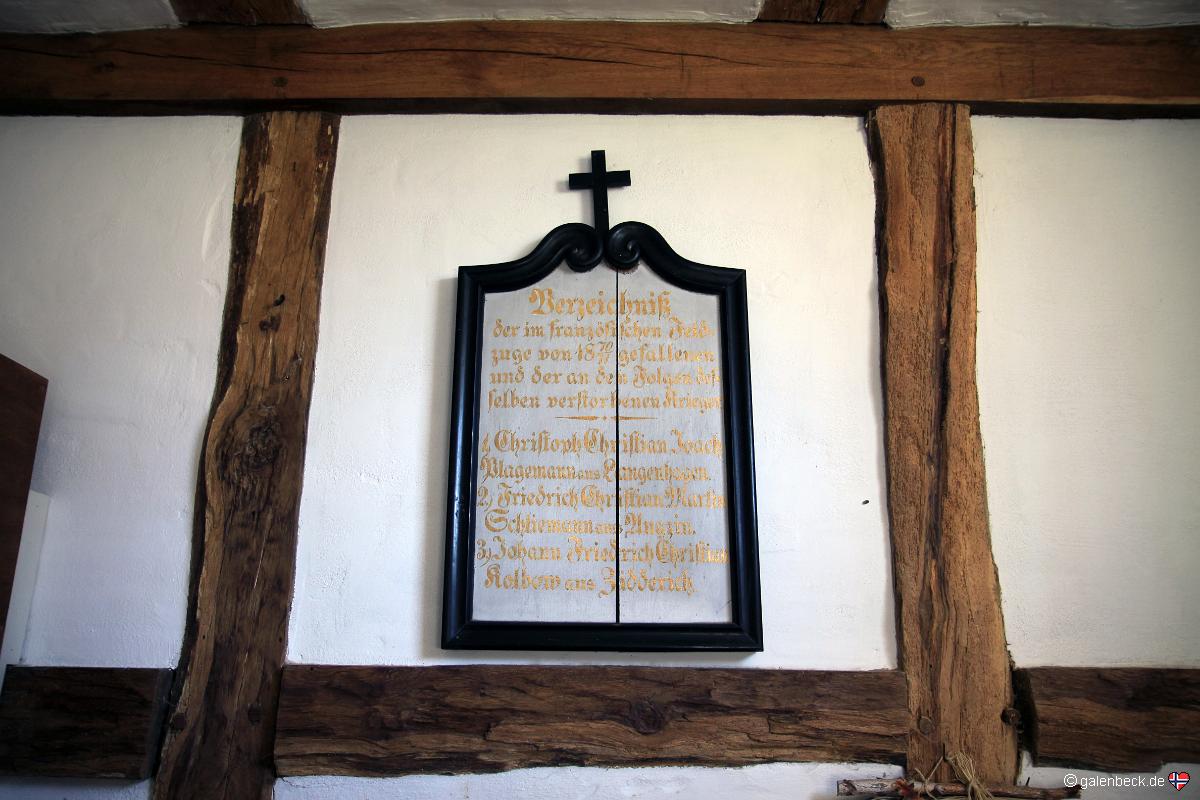 Verzeichniß
der im französischen Feld-
zuge von 18 70/71 gefallenen
und der an den Folgen des-
selben verstorbenen Krieger
1, Christoph Christian Joach
Plagemann aus Langenhagen.
2, Friedrich Christian Martin
Schliemann aus
3, Johann Friedrich Christian
Kolbow aus Zidderich.
© galenbeck.de